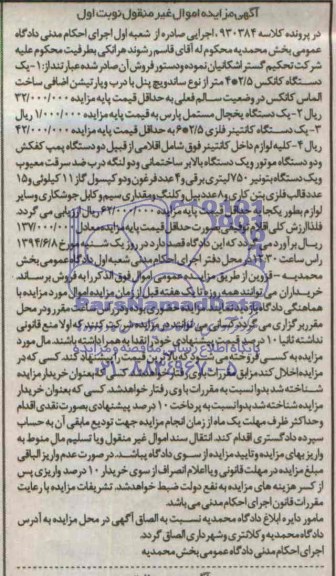 آگهی مزایده اموال غیر منقول نوبت اول
در پرونده کلاسه ۹۳۰۳۸۴ اجرایی صادره از شعبه اول اجرای احکام مدنی دادگاه
عمومی بخش محمدیه محکوم له آقای قاسم رشوند هرانکی بطرفیت محکوم علیه
شرکت تحکیم گستر اشکانیان نموده و دستور فروش آن صادر شده عبارتند از: ۱- یک
دستگاه کانکس ۲/۵*۴ متر از نوع ساندویچ پنل با درب و پارتیشن اضافی ساخت
الماس کانکس در وضعیت سالم فعلی به حداقل قیمت پایه مزایده ۳۲/۰۰۰/۰۰۰
ریال ۲- یک دستگاه یخچال مستعمل پارس به قیمت پایه مزایده ۱/۰۰۰/۰۰۰ ریال
۳- یک دستگاه کانتینر فلزی ۲/۵*۶ به حداقل قیمت پایه مزایده ۴۲/۰۰۰/۰۰۰
ریال ۴- کلیه لوازم داخل کانتینر فوق شامل اقلامی از قبیل دو دستگاه پمپ کفکش
و دو دستگاه موتور ویک دستگاه بالابر ساختمانی ودو لنگه درب ضد سرقت معیوب
و یک دستگاه بتونیر ۷۵۰ لیتری برقی و ۴ عدد فرغون ودو کپسول گاز ۱۱ کیلوئی و ۱۵
عدد قالب فلزی بتن کاری و ۸ عدد بیل و کلنگ و مقداری سیم و کابل جوشکاری و سایر
لوازم بطور یکجا به حداقل قیمت پایه مزایده ۶۲/۰۰۰/۰۰۰ ریال ارزیابی می گردد.
فلذا ارزش کلی اقلام فوق به صورت حداقل قیمت پایه مزایده معادل ۱۳۷/۰۰۰/۰۰۰
ریال برآورد می گردد که این دادگاه قصد دارد در روز یک شنبه مورخ ۱۳۹۴/۶/۸
راس ساعت ۱۲:۳۰ در محل دفتر اجرای احکام مدنی شعبه اول دادگاه عمومی بخش
محمدیه - قزوین از طریق مزایده عمومی اموال فوق الذکر را به فروش برساند.
خریداران می توانند همه روزه تا یک هفته قبل از زمان مزایده اموال مورد مزایده با
هماهنگی دادگاه بازدید
مقرر برگزار می گردد کسانی می توانند در مزایده شرکت کنند که اولا منع قانونی
نداشته ثانیا ۱۰ درصد قیمت پیشنهادی خود را نقدا به همراه داشته باشند. مال مورد
مزایده به کسی فروخته می شود که بالاترین قیمت را پیشنهاد کند. کسی که در
مزایده اخلال کند مزایق
شناخته شد بدوا نسبت به مقررات با وی رفتار خواهد شد. کسی که بعنوان خریدار
مزایده شناخته شد بدوا نسبت به پرداخت ۱۰ درصد پیشنهادی بصورت نقدی اقدام
و حداکثر ظرف مهلت یک ماه از زمان انجام مزایده جهت تودیع مابقی آن به حساب
سپرده دادگستری اقدام کند. انتقال سند اموال غیر منقول و یا تسلیم مال منوط به
واریز بهای مزایده و تایید مزایده از سوی دادگاه میباشد. در صورت عدم واریز الباقی
مبلغ مزایده در مهلت قانونی و یا اعلام انصراف از سوی خریدار ۱۰ درصد واریزی پس
از کسر هزینه های مزایده به نفع دولت ضبط خواهد شد. تشریفات مزایده با رعایت
مقررات قانون اجرای احکام مدنی می باشد.
مامور دایره ابلاغ دادگاه محمدیه نسبت به الصاق آگهی در محل مزایده به آدرس
دادگاه محمدیه و کلانتری و شهرداری الصاق گردد.
اجرای احکام مدنی دادگاه عمومی بخش محمدیه